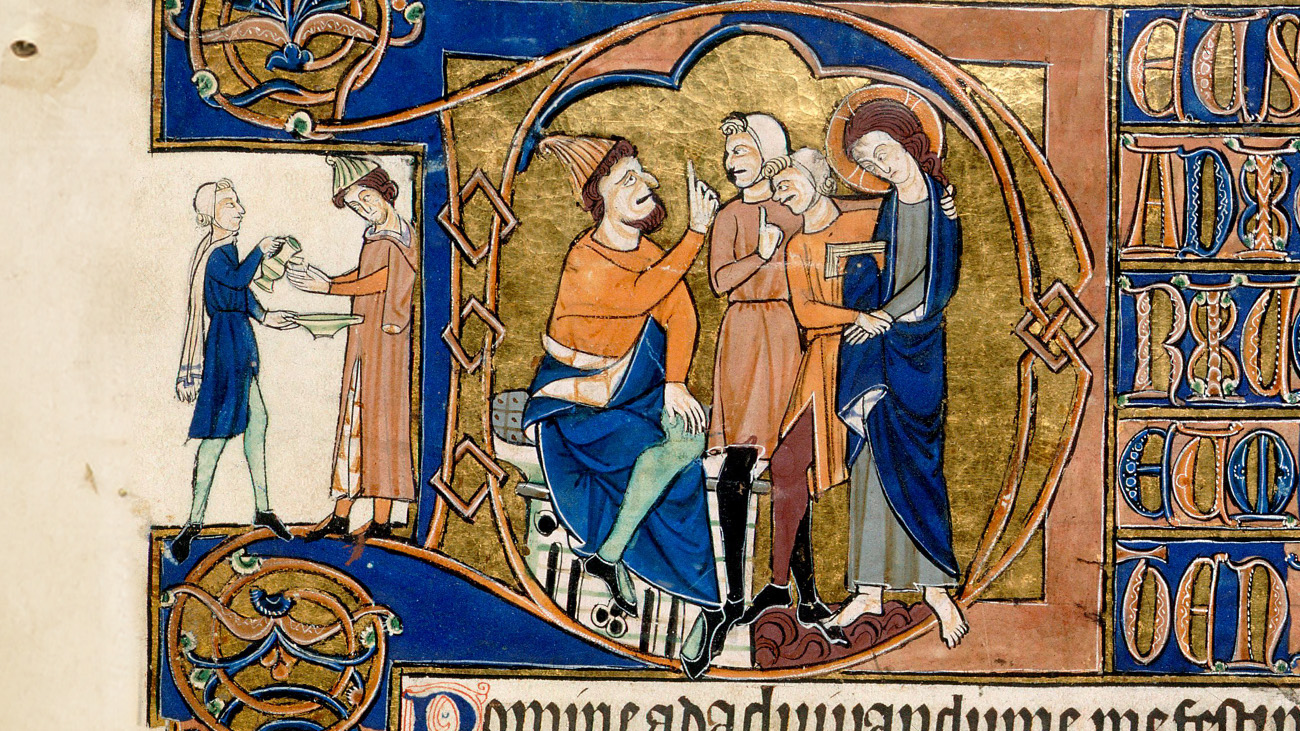 EUS
ADI
RIU
EUM
TEN
Domine ad adiuuandum me festin